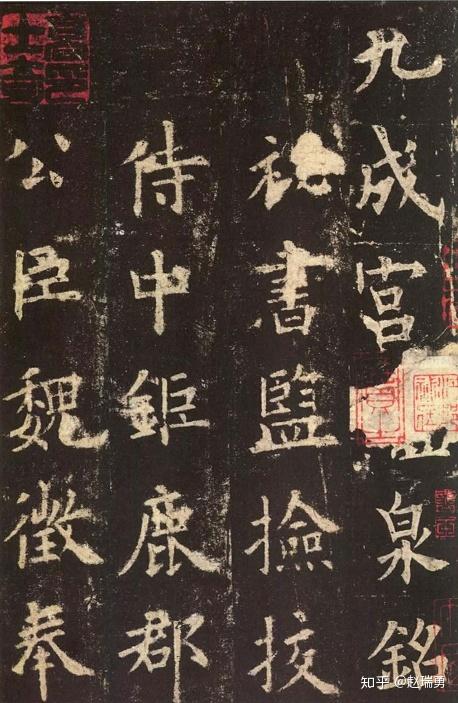 九成宮泉銘
祕書監撿挍
侍中鉅鹿郡
公臣魏徵奉
知乎 @赵瑞勇